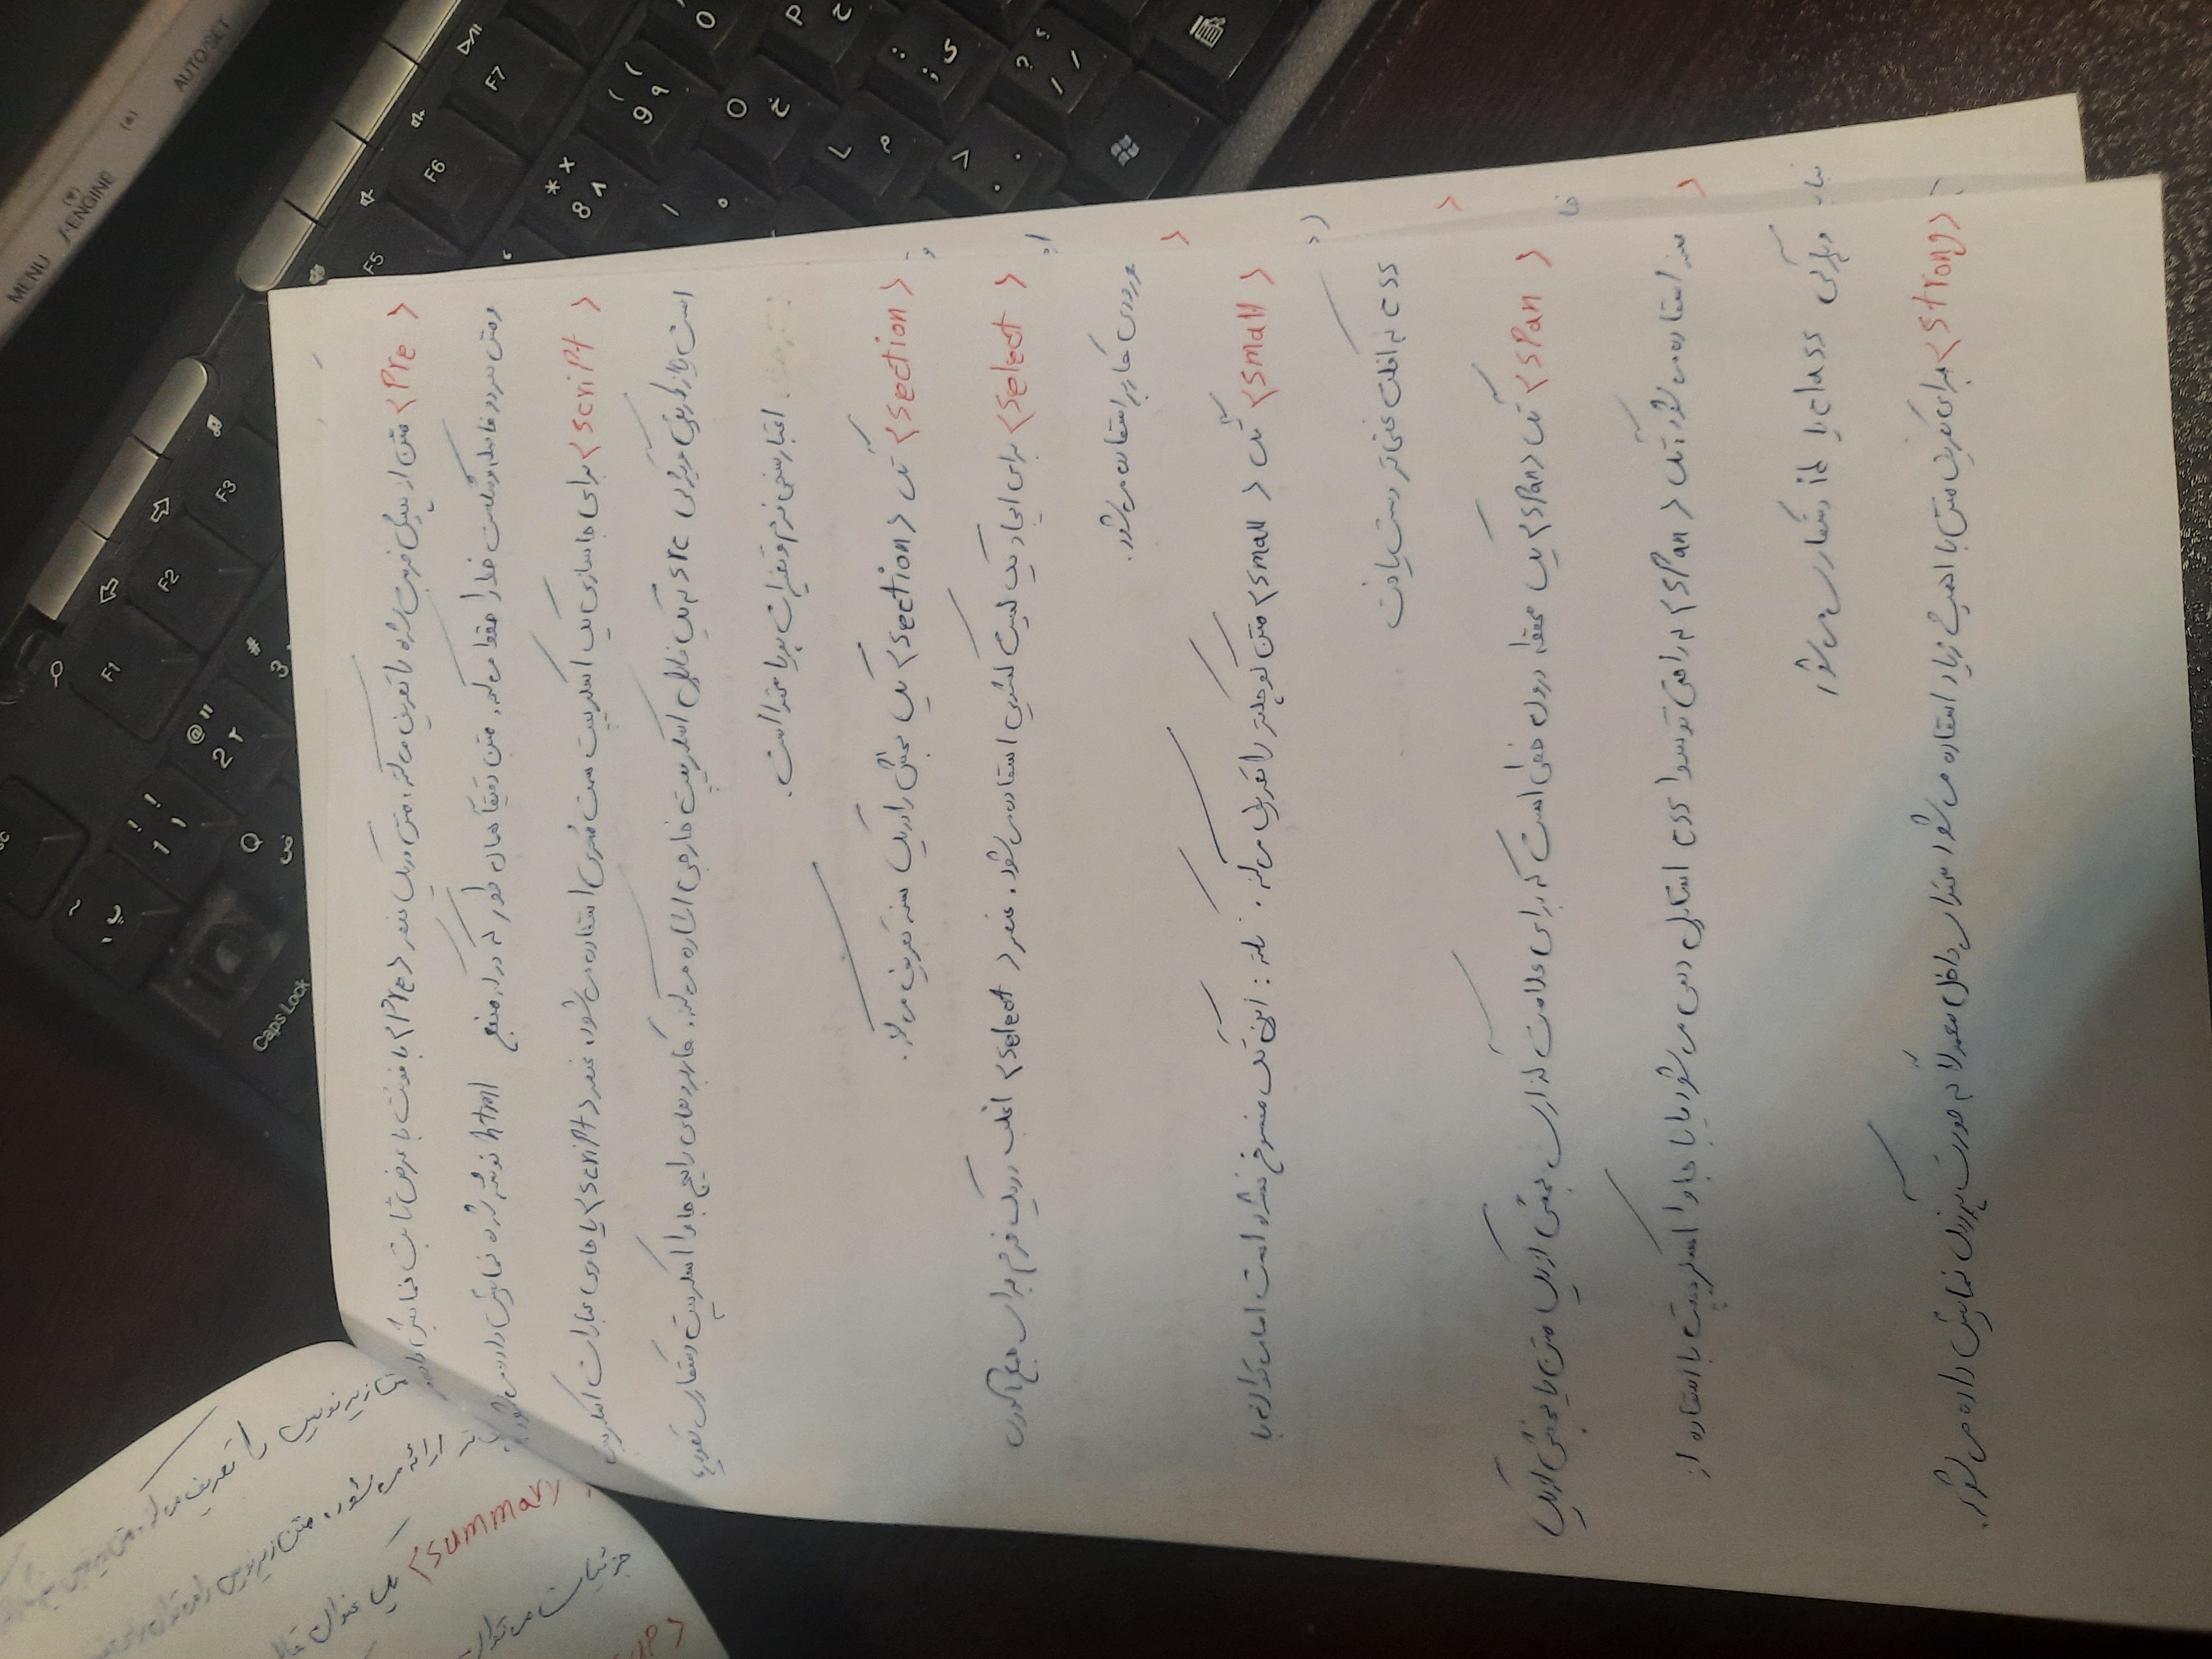 <Pre> متن از پیش فرمت شده را تعریف می‌کند. متن در یک عنصر <Pre> با فونت با عرض ثابت نمایش داده
و متن هر دو فاصله و شکست خط را حفظ می‌کند. متن دقیقاً همان طور که در کد منبع html نوشته شده نمایش داده می‌شود
<script> برای جاسازی یک اسکریپت سمت مشتری استفاده می‌شود. عنصر <script> یا حاوی عبارات اسکریپت
است یا از طریق ویژگی src به یک فایل اسکریپت خارجی اشاره می‌کند. کاربردهای رایج جاوا اسکریپت دستکاری تصویر،
اعتبارسنجی فرم و تغییرات پویا محتوا است.
<section> تگ <section> یک بخش را در یک سند تعریف می‌کند.
<select> برای ایجاد یک لیست کشویی استفاده می‌شود. عنصر <select> اغلب در یک فرم برای جمع آوری
ورودی کاربر استفاده می‌شود.
<small> تگ <small> متن کوچکتر را تعریف می‌کند. نکته: این تگ منسوخ نشده است اما می‌توان با
css به افکت غنی تر دست یافت
<span> تگ <span> یک محفظه درون خطی است که برای علامت گذاری بخشی از یک متن یا بخشی از یک
سند استفاده می‌شود. تگ <span> به راحتی توسط css استایل دهی می‌شود یا با جاوا اسکریپت با استفاده از
ویژگی class یا id دستکاری می‌شود
<strong> برای تعریف متن با اهمیت زیاد استفاده می‌شود محتوای داخل معمولاً به صورت پررنگ نمایش داده می‌شود.
<summary> یک عنوان
MENU
f-ENGINE
AUTO/SET
Caps Lock
F1
F2
F3
F5
F6
F7